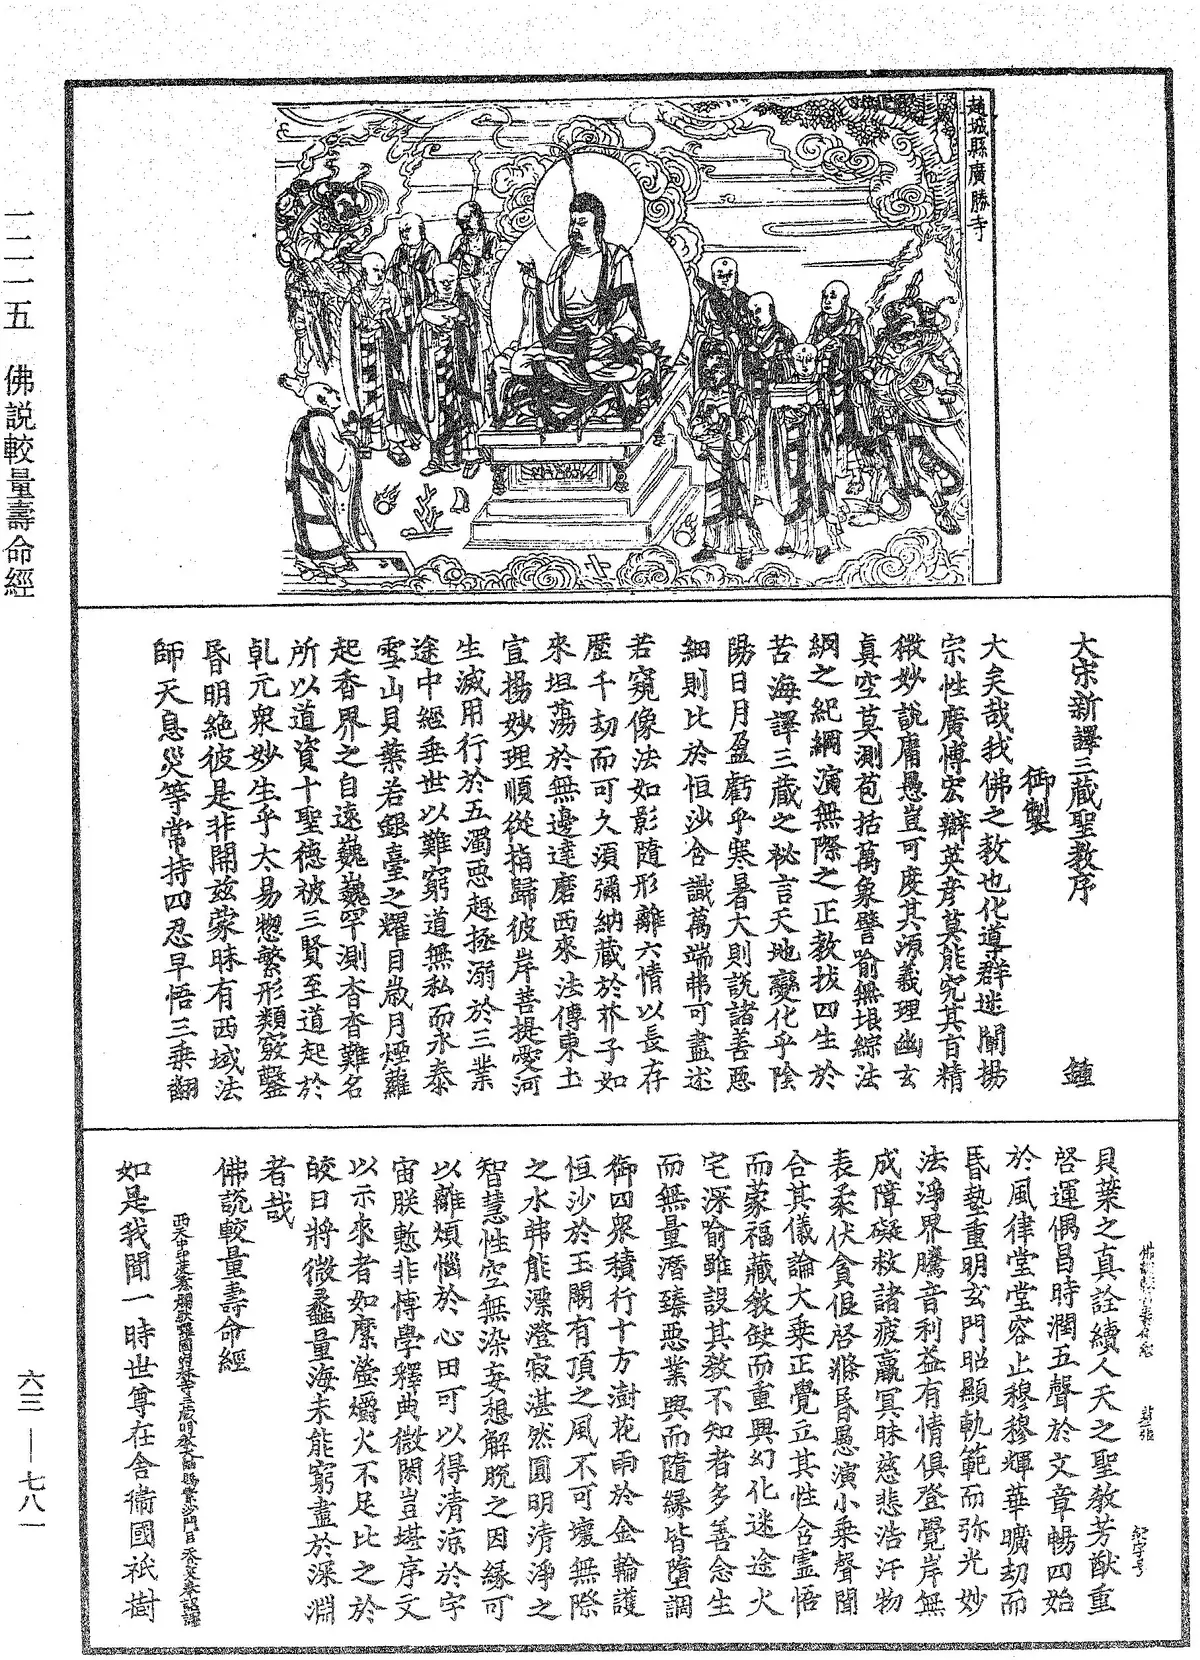 趙城縣廣勝寺
大宋新譯三藏聖教序
御製
鍾
大矣哉我佛之教也化導群迷闡揚
宗性廣博宏辯英彥莫能究其旨精
微妙說庸愚豈可度其源義理幽玄
真空莫測苞括萬象譬喻無垠綜法
網之紀綱演無際之正教拔四生於
苦海譯三藏之秘言天地變化乎陰
陽日月盈虧乎寒暑大則說諸善惡
細則比於恒沙含識萬端弗可盡述
若窺像法如影隨形離六情以長存
歷千劫而可久須彌納藏於芥子如
來坦蕩於無邊達磨西來法傳東土
宣揚妙理順從指歸彼岸菩提愛河
生滅用行於五濁惡趣拯溺於三業
途中經垂世以難窮道無私而永泰
雪山貝葉若銀臺之耀目歲月煙蘿
起香界之自遠巍巍罕測杳杳難名
所以道資十聖德被三賢至道起於
乹元衆妙生乎太易惣繁形類竅鑿
昏明絕彼是非開兹蒙昧有西域法
師天息災等常持四忍早悟三乘翻
貝葉之真詮續人天之聖教芳猷重
啓運偶昌時潤五聲於文章暢四始
於風律堂堂容止穆穆輝華曠劫而
昏墊重明玄門昭顯軌範而弥光妙
法淨界騰音利益有情俱登覺岸無
成障礙救諸疲羸冥昧慈悲浩汗物
表柔伏貪很啓滌昏愚演小乘聲聞
合其儀論大乘正覺立其性含靈悟
而蒙福藏教缺而重興幻化迷途火
宅深喻雖設其教不知者多善念生
而無量潛臻惡業興而隨緣皆墮調
御四衆積行十方澍花雨於金輪護
恒沙於玉闕有頂之風不可壞無際
之水弗能漂澄寂湛然圓明清淨之
智慧性空無染妄想解脫之因緣可
以離煩惱於心田可以得清涼於宇
宙朕慙非博學釋典微閑豈堪序文
以示來者如縻螢爝火不足比之於
皎日將微蠡量海未能窮盡於深淵
者哉
佛說較量壽命經
如是我聞一時世尊在舍衞國祇樹
一二一五　佛説較量壽命經
六三—七八一